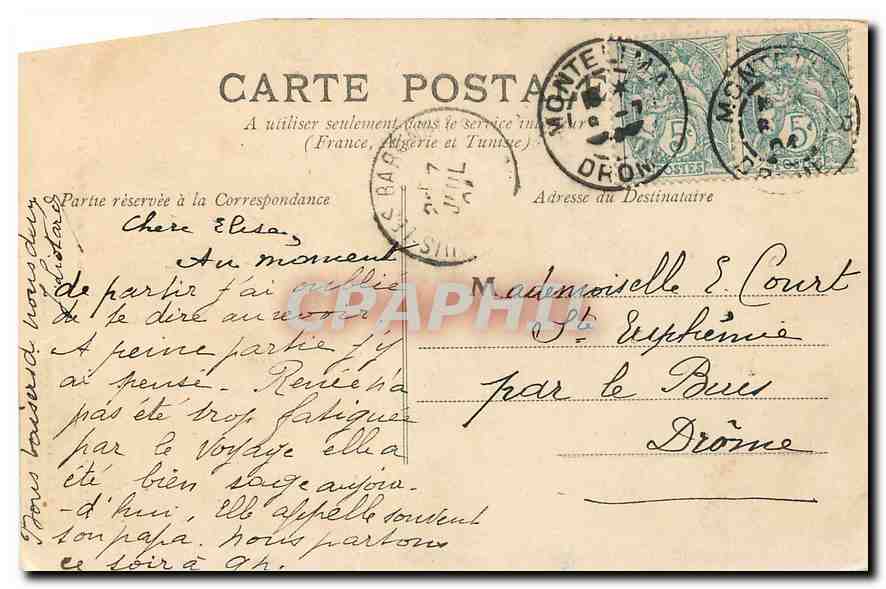 CARTE POSTA
A utiliser seulement dans le service
(France, Algérie et Tunisie)
MONTELIMA
DROM
5c
POSTES
MONTE
5c
7
JUIL
Partie réservée à la Correspondance
Adresse du Destinataire
Chere Elisa,
Au moment
de partir j'ai oublié
de te dire au revoir
A peine partie j'y
ai pensé - Renée n'a
pas été trop fatiguée
par le voyage elle a
été bien sage aujour-
-d'hui, Elle appelle souvent
son papa. nous partons
ce soir à 9h.
Bons baisers nous deux
Mademoiselle E. Court
Ste Euphémie
par le Buis
Drôme
CPAPHIL